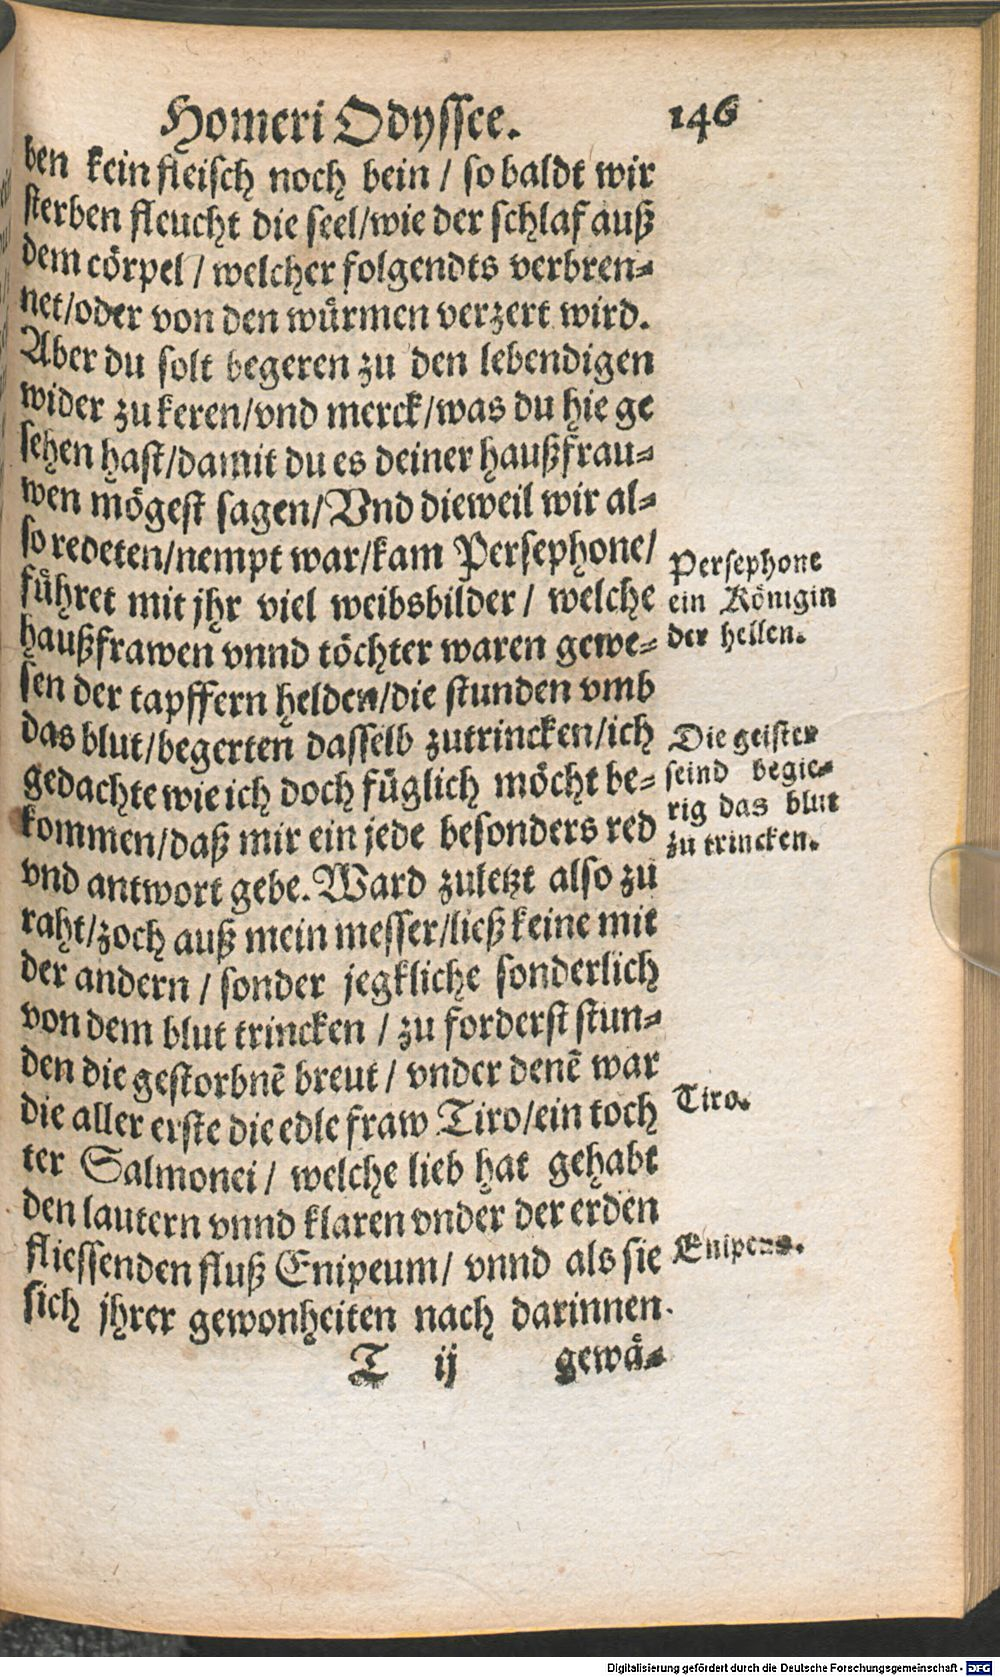 Homeri Odyssee. 146
ben kein fleisch noch bein / so baldt wir
sterben fleucht die seel/wie der schlaf auß
dem cörpel / welcher folgendts verbren⸗
net/oder von den würmen verzert wird.
Aber du solt begeren zu den lebendigen
wider zu keren/vnd merck/was du hie ge
sehen hast/damit du es deiner haußfrau⸗
wen mögest sagen/Vnd dieweil wir al⸗
so redeten/nempt war/kam Persephone/
führet mit jhr viel weibsbilder / welche
haußfrawen vnnd töchter waren gewe⸗
sen der tapffern helden/die stunden vmb
das blut/begerten dasselb zutrincken/ich
gedachte wie ich doch füglich möcht be⸗
kommen/daß mir ein jede besonders red
vnd antwort gebe. Ward zuletzt also zu
raht/zoch auß mein messer/ließ keine mit
der andern / sonder jegkliche sonderlich
von dem blut trincken / zu forderst stun⸗
den die gestorbnẽ breut / vnder denẽ war
die aller erste die edle fraw Tiro/ein toch
ter Salmonei / welche lieb hat gehabt
den lautern vnnd klaren vnder der erden
fliessenden fluß Enipeum/ vnnd als sie
sich jhrer gewonheiten nach darinnen
T ij gewä⸗
Persephone
ein Königin
der hellen.
Die geister
seind begie⸗
rig das blut
zu trincken.
Tiro.
Enipeus.
Digitalisierung gefördert durch die Deutsche Forschungsgemeinschaft - DFG